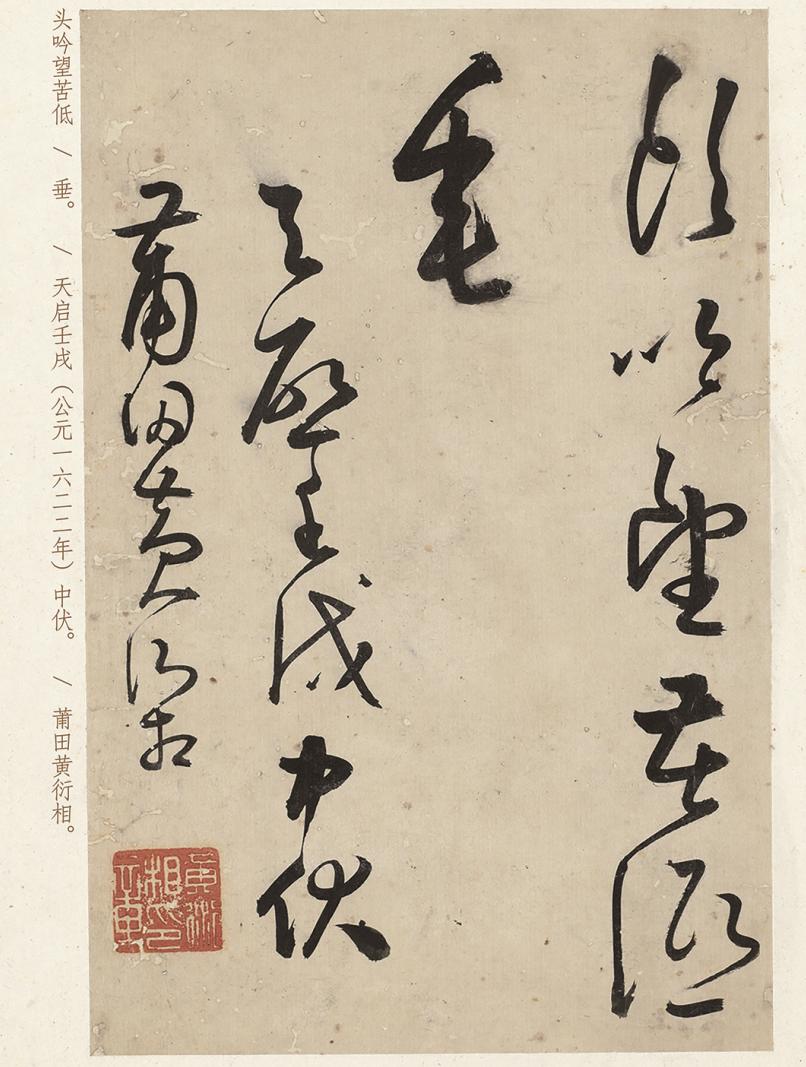 頭吟望苦低
垂
天啟壬戌中伏
莆田黃衍相
黃衍相印
头吟望苦低 / 垂。 / 天启壬戌（公元一六二二年）中伏。 / 莆田黄衍相。